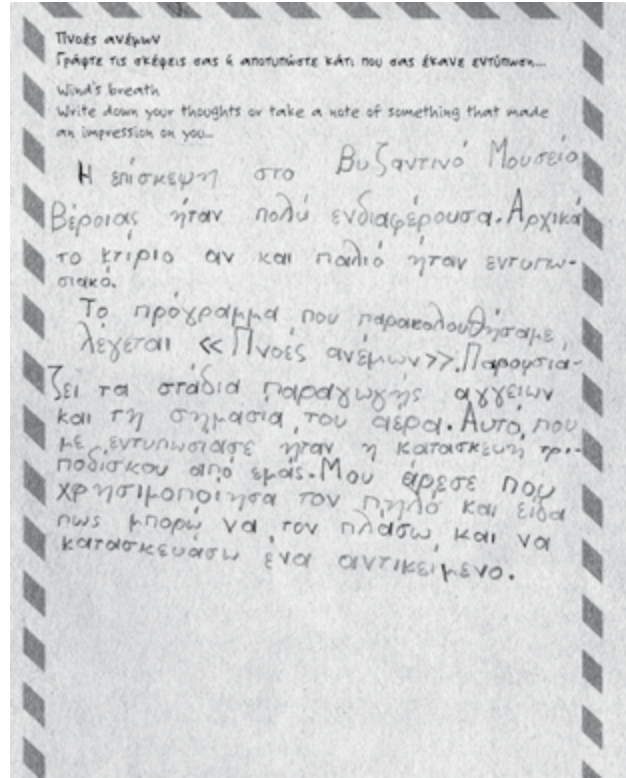 Πνοές ανέμων
Γράψτε τις σκέψεις σας ή αποτυπώστε κάτι που σας έκανε εντύπωση...
Wind's breath
Write down your thoughts or take a note of something that made
an impression on you...
Η επίσκεψη στο Βυζαντινό Μουσείο
Βέροιας ήταν πολύ ενδιαφέρουσα. Αρχικά
το κτίριο αν και παλιό ήταν εντυπω-
σιακό.
Το πρόγραμμα που παρακολουθήσαμε,
λέγεται << Πνοές ανέμων>>. Παρουσιά-
ζει τα στάδια παραγωγής αγγείων
και τη σημασία του αέρα. Αυτό που
με εντυπωσίασε ήταν η κατασκευή τρι-
ποδίσκου από εμάς. Μου άρεσε που
χρησιμοποίησα τον πηλό και είδα
πως μπορώ να τον πλάσω και να
κατασκευάσω ένα αντικείμενο.